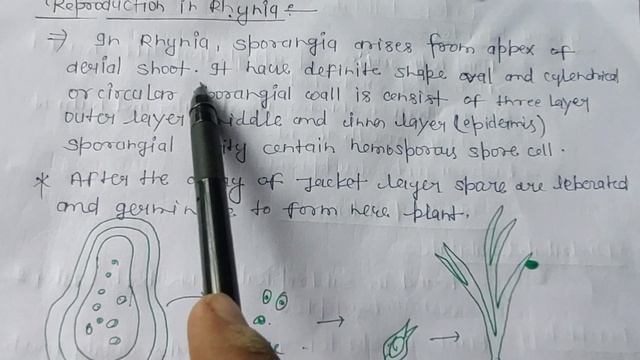 Reproduction in Rhynia :-
⇒ In Rhynia, sporangia arises from appex of
aerial shoot. It have definite shape oval and cylendrical
or circular sporangial wall is consist of three layer
outer layer middle and inner layer (epidermis)
sporangial contain homosporous spore cell.
* After the of Jacket layer spore are leberated
and germin e to form new plant.